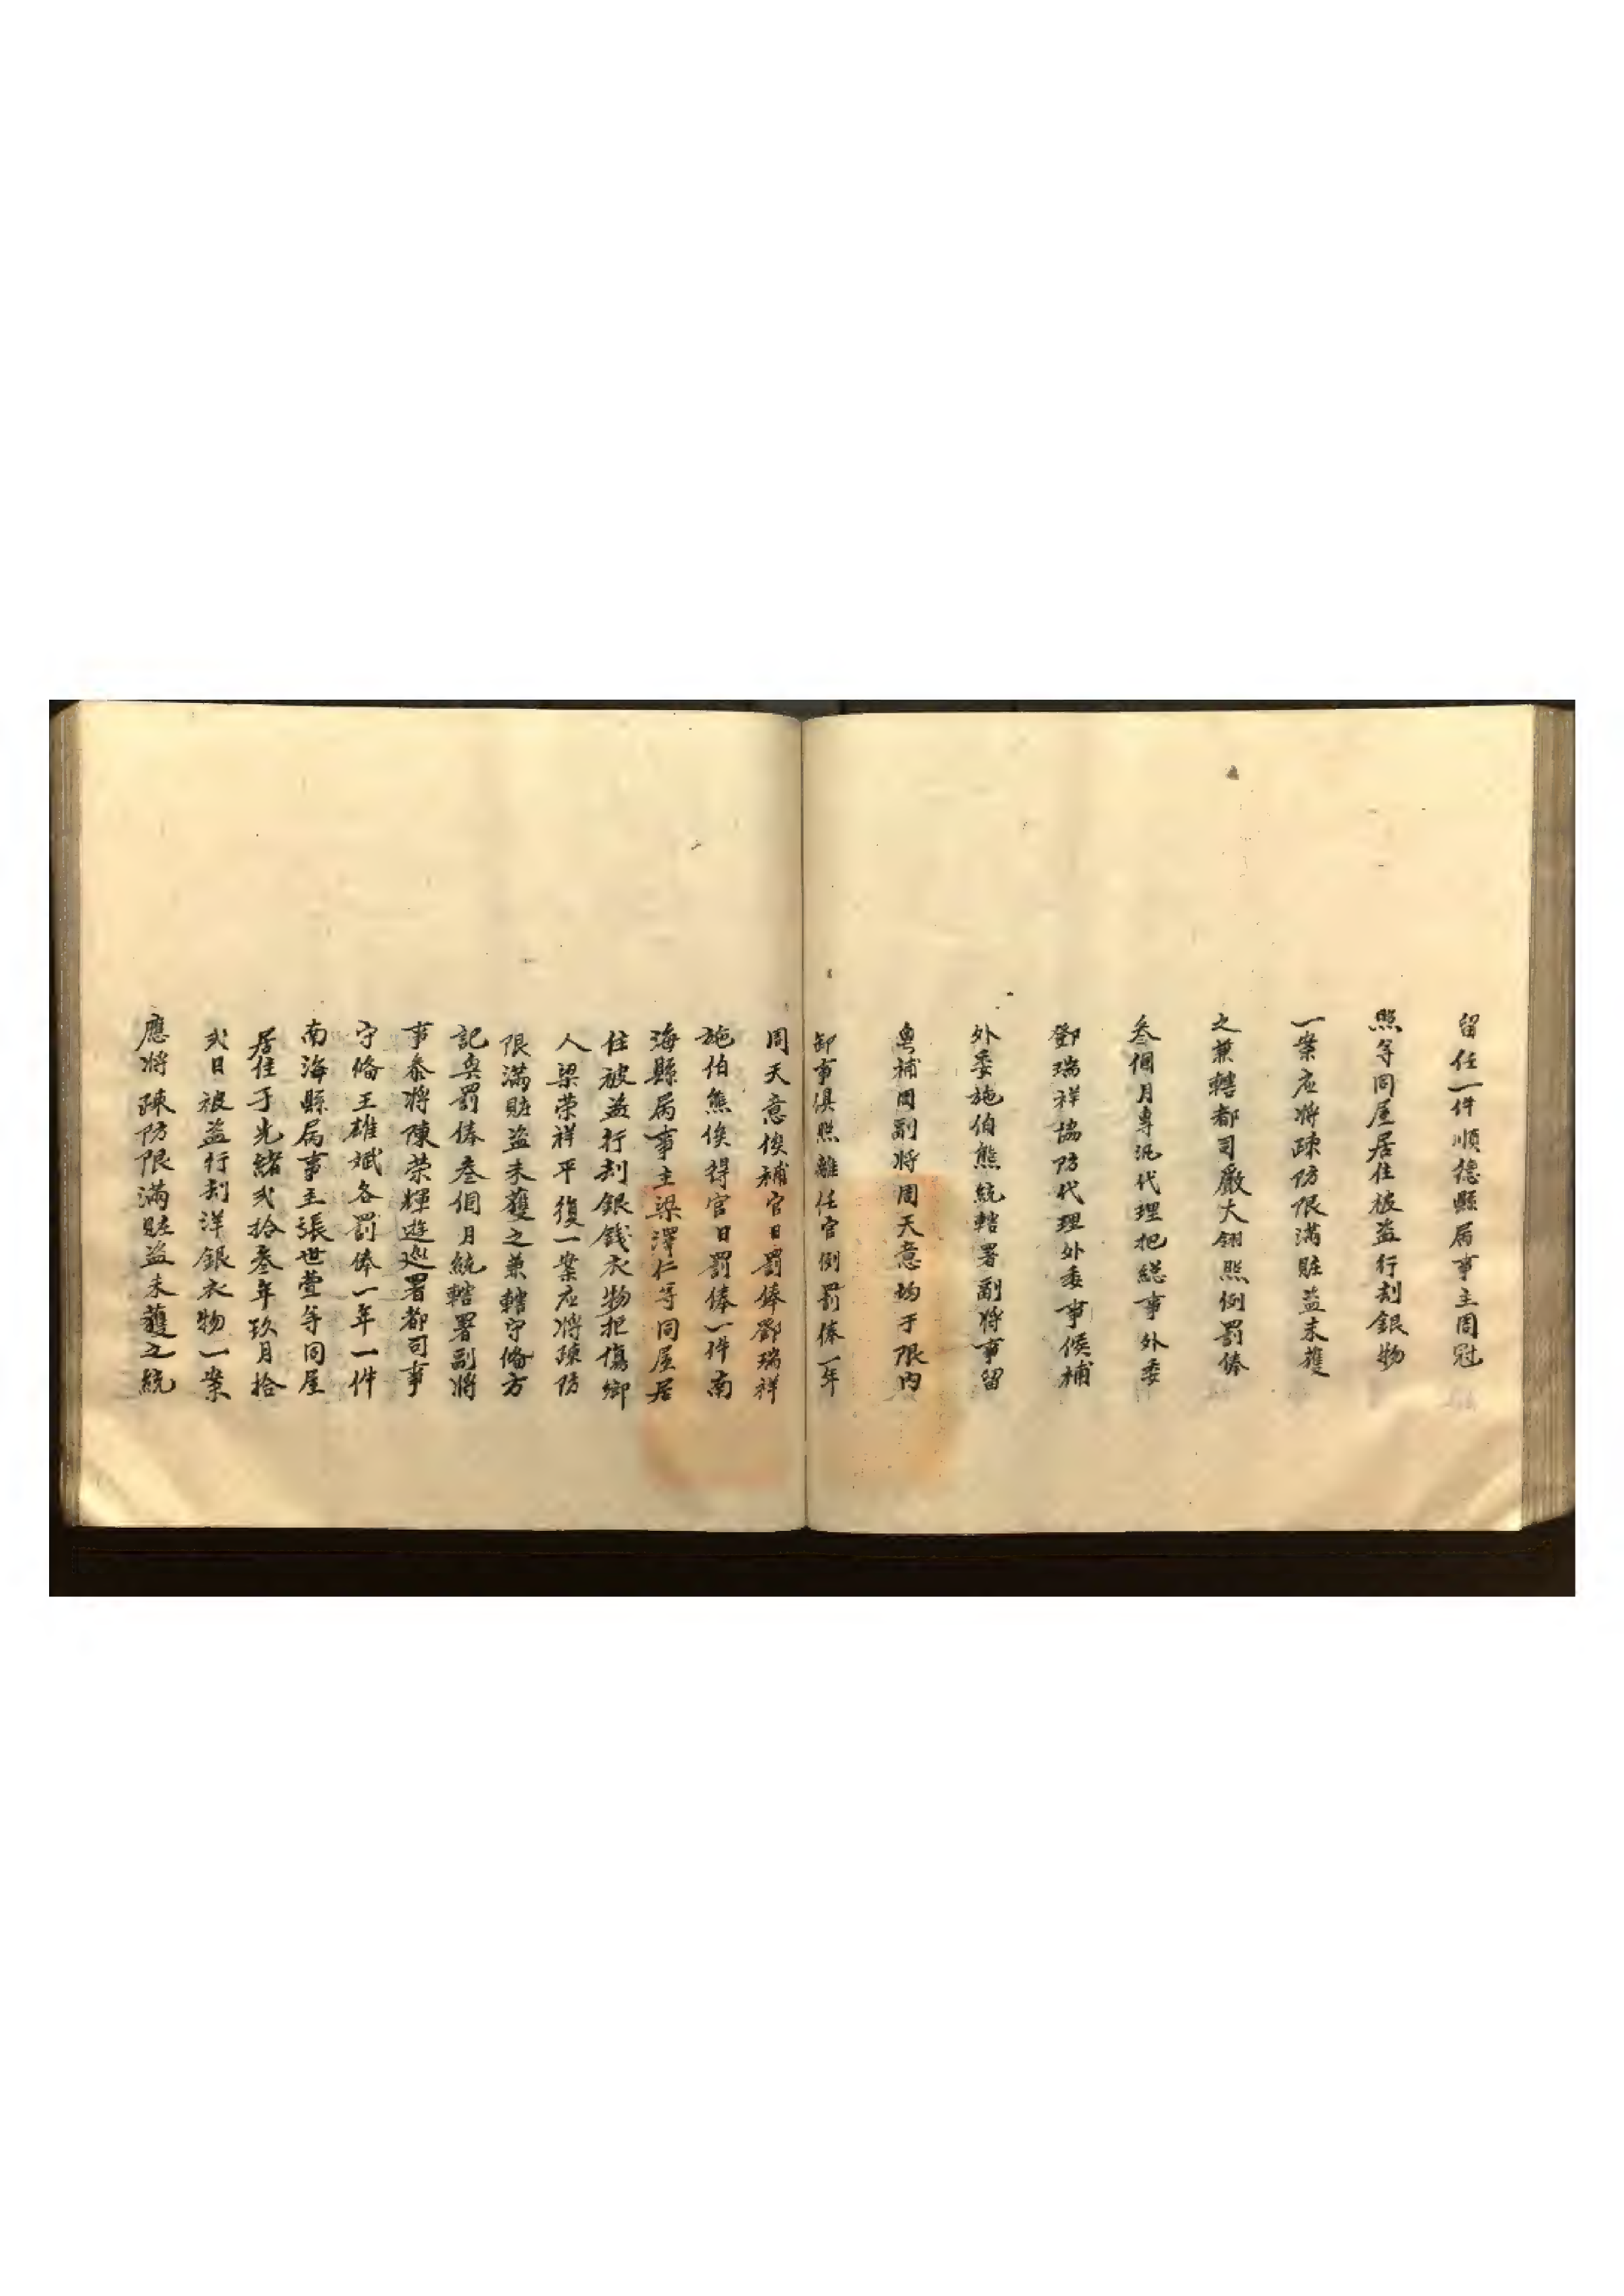 留任一件順德縣屬事主周冠
熙等同屋居住被盜行刦銀物
一案应将疎防限滿賍盜未獲
之兼轄都司嚴大翎照例罰俸
叁個月專汛代理把総事外委
鄧瑞祥協防代理外委事候補
外委施伯熊統轄署副将事留
粤補用副将周天意均于限内
卸事俱照離任官例罰俸一年
周天意俟補官日罰俸鄧瑞祥
施伯熊俟得官日罰俸一件南
海縣屬事主梁澤仁等同屋居
住被盜行刦銀錢衣物拒傷鄉
人梁荣祥平復一案应将疎防
限滿賍盜未獲之兼轄守俻方
記奥罰俸叁個月統轄署副将
事叅将陳荣輝遊巡署都司事
守俻王雄斌各罰俸一年一件
南海縣屬事主張世萱等同屋
居住于光緒弍拾叁年玖月拾
弍日被盜行刦洋銀衣物一案
應将疎防限滿賍盜未獲之統